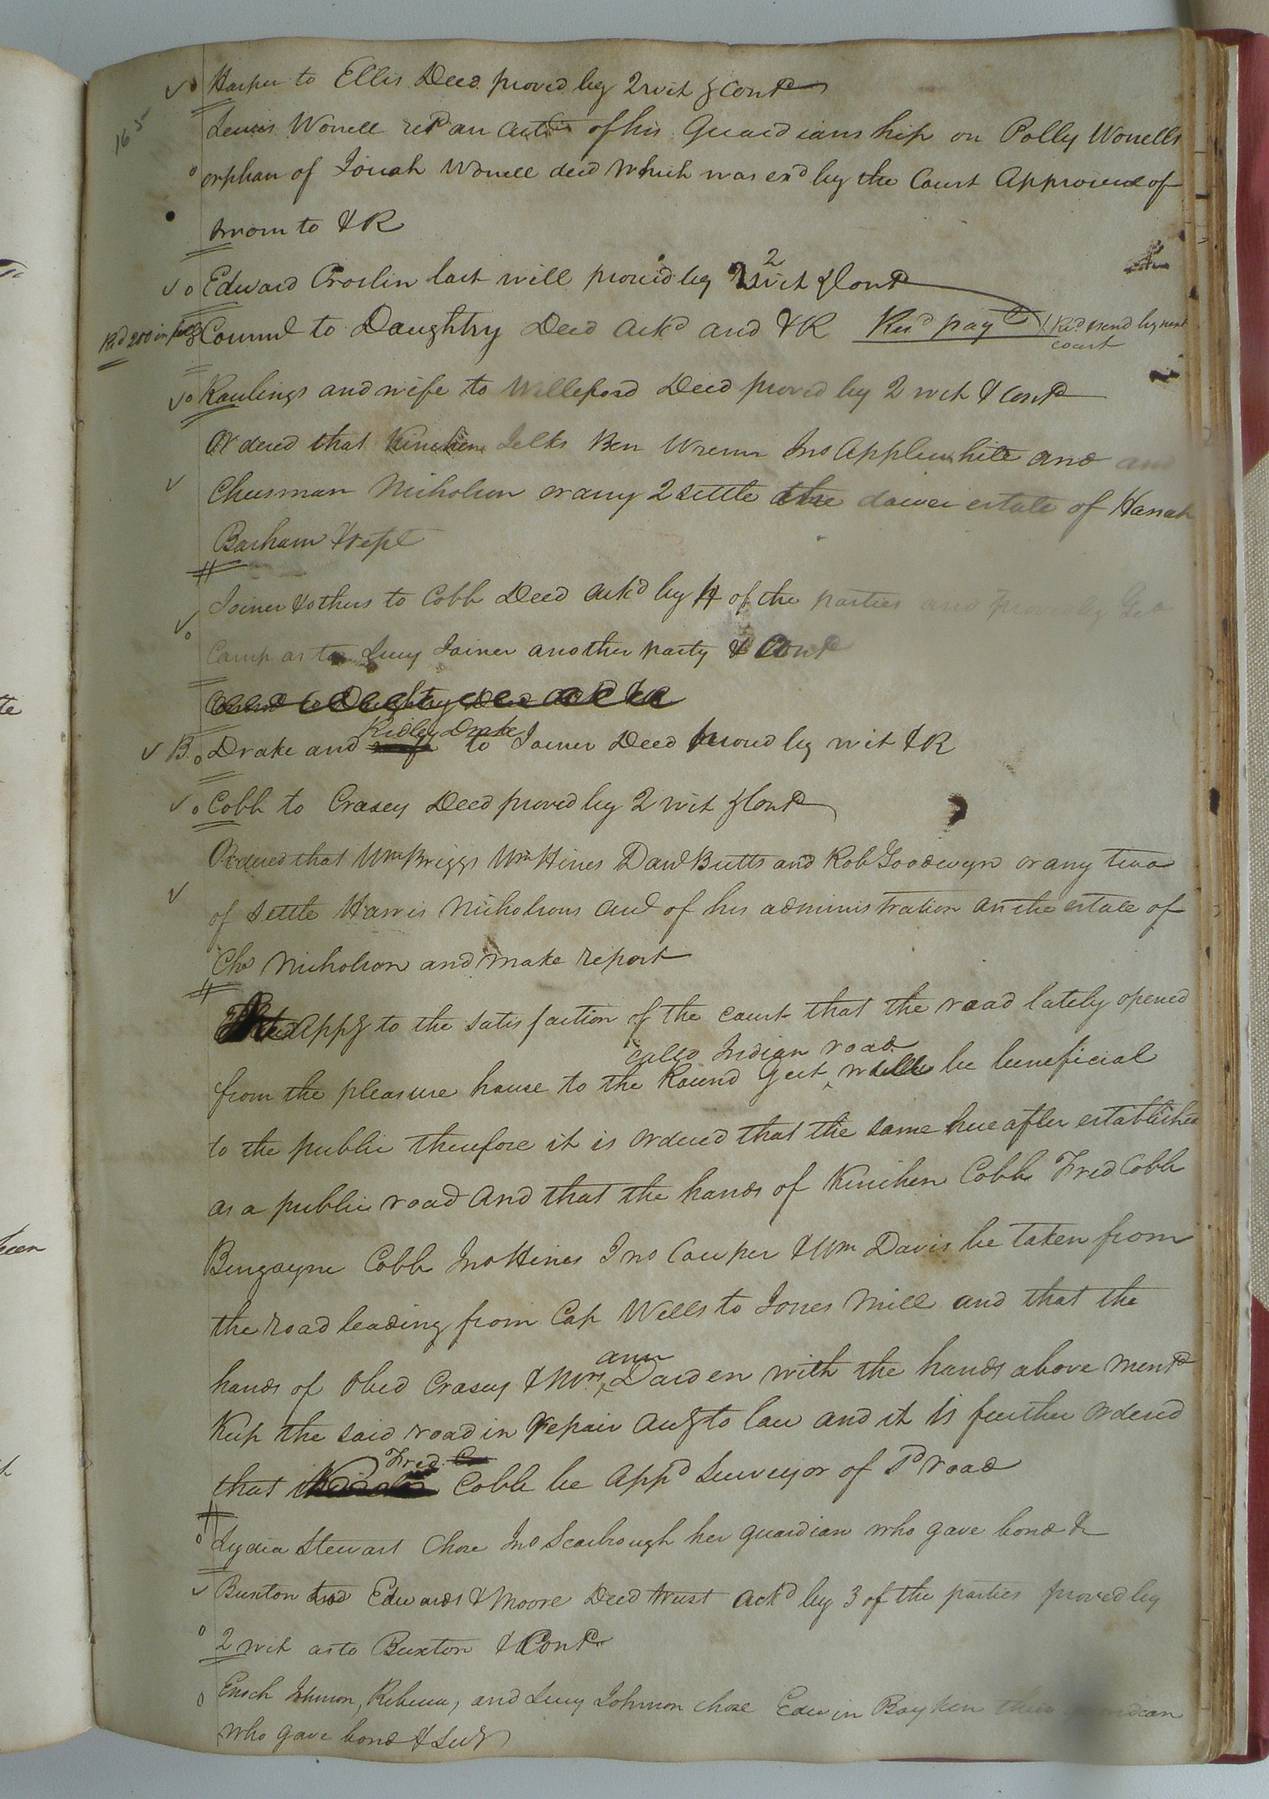 165
Harper to Ellis Deed proved by 2 wit & Contd
Lewis Worrell retd an acct of his Guardianship on Polly Worrells
orphan of Josiah Worrell decd which was exd by the Court Approved of
sworn to & R
Edward Croslin last will proved by 2 wit & Contd
Rd 200 in full Council to Daughtry Deed ackd and & R Recd pay court
Raulings and wife to Williford Deed proved by 2 wit & Contd
Ordered that Kinchen Jelks Ben Wrenn Jno Applewhite and and
Cheesman Nicholson or any 2 settle the dower estate of Hanah
Barham & rept
Joiner & others to Cobb Deed ackd by 4 of the parties and proved by Geo
Camp as to Lucy Joiner another party & Contd
B. Drake and Ridley Drake to Joiner Deed proved by wit & R
Cobb to Crasey Deed proved by 2 wit & Contd
Ordered that Wm Briggs Wm Hines Danl Butts and Rob Goodwyn or any two
of settle Harris Nicholsons acct of his administration on the estate of
Chs Nicholson and make report
Appg to the satisfaction of the court that the road lately opened
called Indian road
from the pleasure house to the Round Gut will be beneficial
to the public therefore it is ordered that the same hereafter established
as a public road and that the hands of Kinchen Cobb Fred Cobb
Cobb Jno Hines Jno Cowper & Wm Davis be taken from
the road leading from Cap Wells to Jones Mill and that the
ann
hands of Obed Crasey & Mrs Darden with the hands above mentd
Keep the said road in repair accg to law and it is further ordered
Fred
that Cobb be appd Surveyor of sd road
Lydia Stewart Chose Jno Scarbrough her guardian who gave bond &
Buxton Edwards & Moore Deed trust ackd by 3 of the parties proved by
2 wit as to Buxton & Contd
Enoch Johnson, Rebecca, and Lucy Johnson chose Edwin Boykin their guardian
who gave bond & Secy